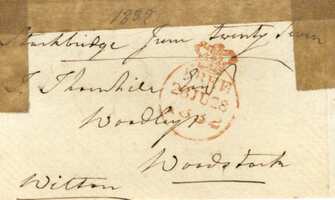 Stockbridge June twenty seven
T. Thornhill Esq
FREE
28 JU 28
Woodleys
Woodstock
Wilton